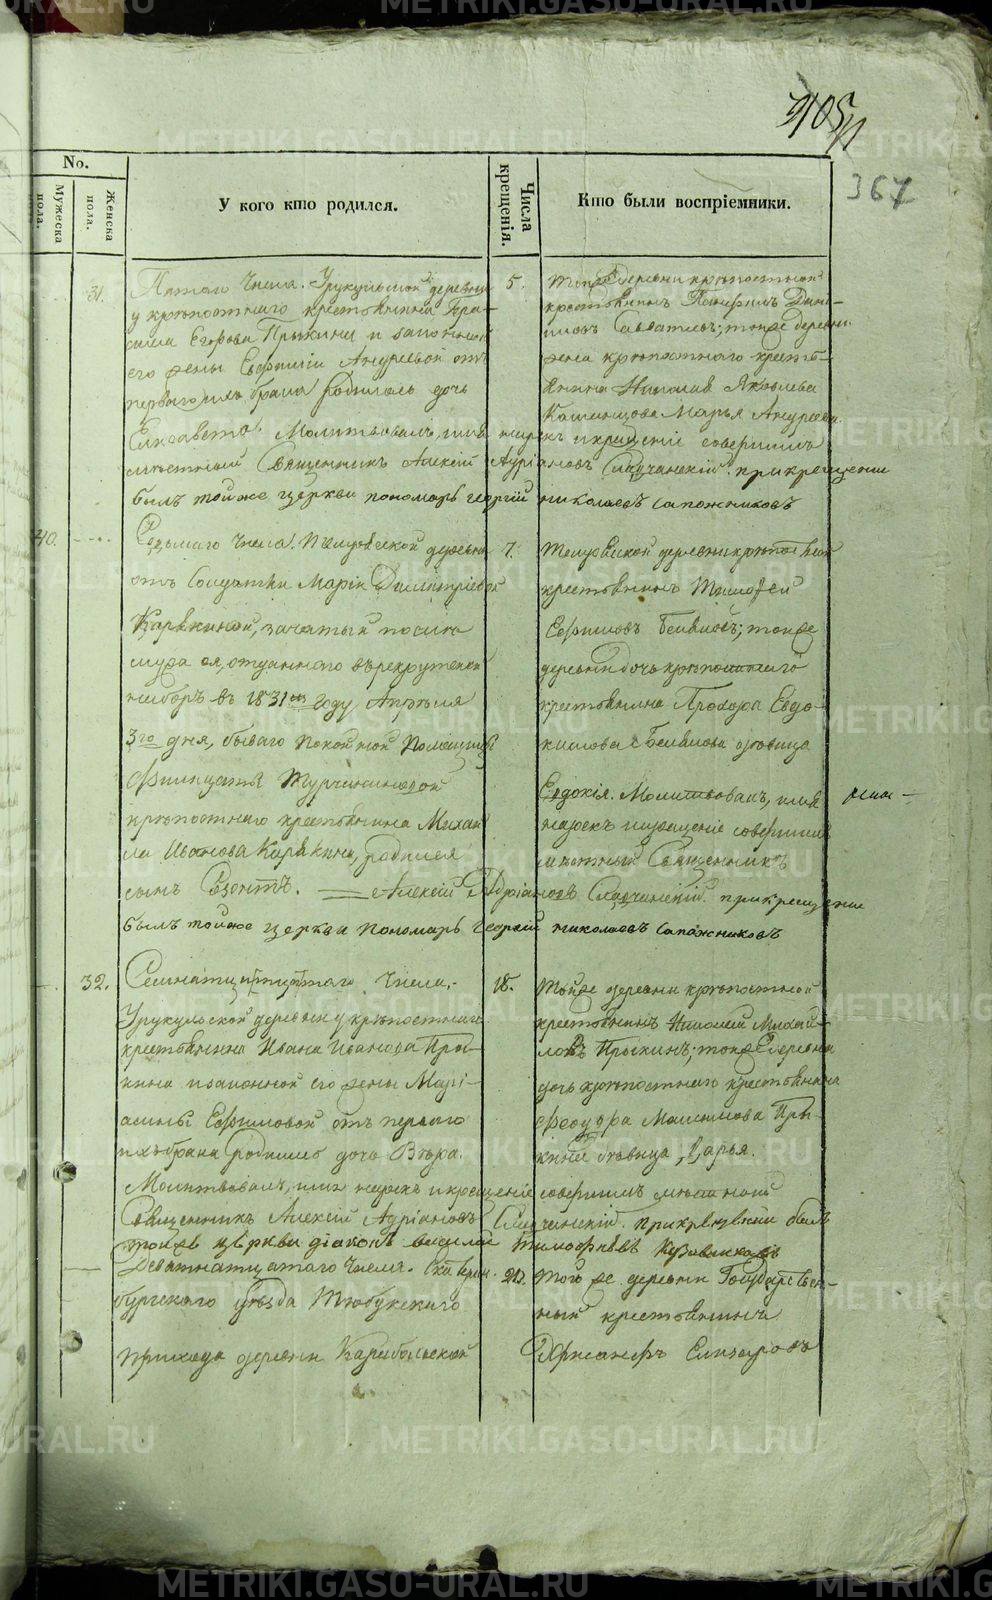 405
367
No.
Мужеска пола.
Женска пола.
У кого кто родился.
Числа крещенія.
Кто были воспріемники.
31.
Пятаго Числа. Урукульской деревни
у крѣпостнаго крестьянина Гра-
Егорова Прыкина и законной
его жены Евфиміи Андреевой отъ
перваго ихъ брака родилась дочь
Елисавета. Молитвовалъ, имя нарекъ и крещеніе совершилъ
мѣстный Священникъ Алексій Адріановъ Сладчанскій. при крещеніи
былъ той же церкви пономарь Георгій Николаевъ Сапожниковъ
5.
тойже деревни крѣпостной
крестьянинъ Панфилъ Дани-
ловъ Савватіевъ; тойже деревни
жена крѣпостнаго кресть-
янина Николая Яковлева
Марья Андреева
40.
Седьмаго Числа. деревни
отъ Солдатки Маріи Димитріевой
Карякиной, зачатый послѣ
мужа ея, отданнаго въ рекрутскій
наборъ въ 1831мъ году Апрѣля
3го дня, бывшаго покойной Помѣщицы
Филицаты Турчаниновой
крѣпостнаго крестьянина Михаи-
ла Иванова Карякина, родился
сынъ Созонтъ. Алексій Адріановъ Сладчанскій. при крещеніи
былъ тойже церкви пономарь Георгій Николаевъ Сапожниковъ
7.
деревни крѣпостной
крестьянинъ Тимофей
Ефимовъ Беляковъ; тойже
деревни дочь крѣпостнаго
крестьянина Прохора Евдо-
кимова Белякова дѣвица
Евдокія. Молитвовалъ, имя
нарекъ и крещеніе совершилъ
мѣстный Священникъ
32.
Семнатцатаго Числа.
Урукульской деревни у крѣпостнаго
крестьянина Ивана Иванова Пры-
кина и законной его жены Марі-
Ефимовой отъ перваго
ихъ брака родилась дочь Вѣра.
Молитвовалъ, имя нарекъ и крещеніе совершилъ мѣстный
Священникъ Алексій Адріановъ Сладчанскій. при крещеніи былъ
тойже церкви діаконъ Василій Тимофѣевъ
18.
Тойже деревни крѣпостной
крестьянинъ Николай Михай-
ловъ Прыкинъ; тойже деревни
дочь крѣпостнаго крестьянина
Феодора Максимова Пры-
кина дѣвица Дарья.
Девятнатцатаго Числа. Екатерин-
бургскаго уѣзда Тюбукскаго
прихода деревни Карабольской
20.
Того же деревни Государствен-
ный крестьянинъ
Елизаровъ
METRIKI.GASO-URAL.RU